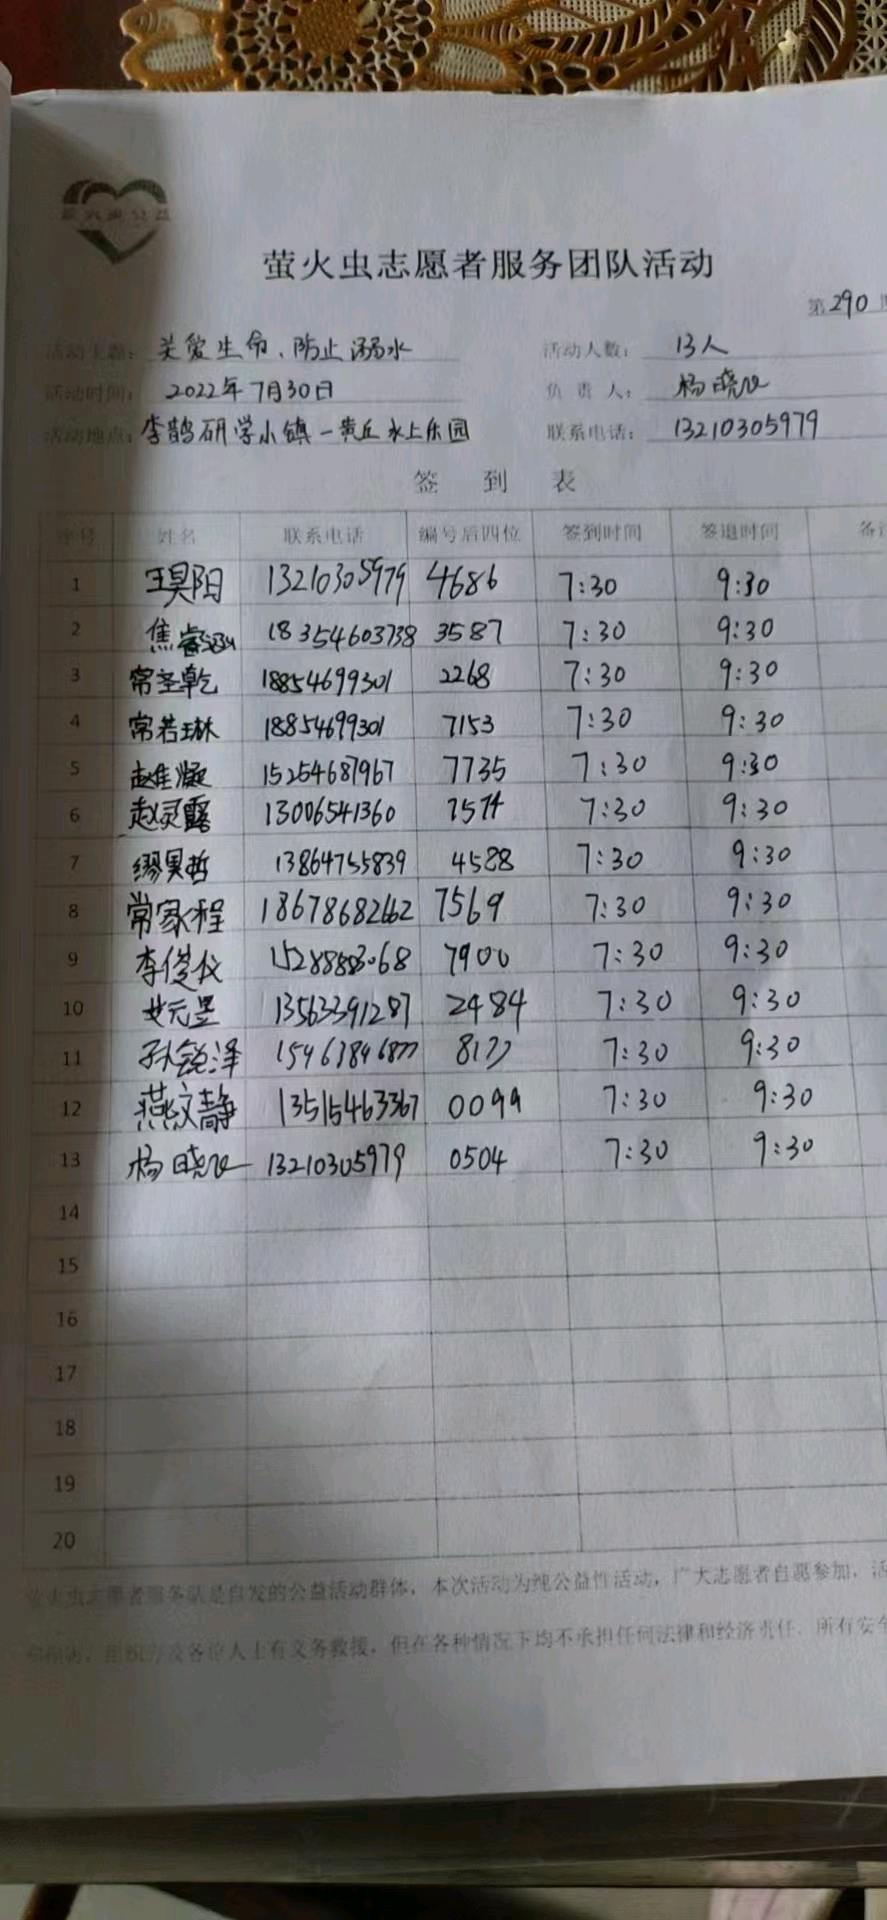 萤火虫公益
萤火虫志愿者服务团队活动
第290
活动主题: 关爱生命、防止溺水 活动人数: 13人
活动时间: 2022年7月30日 负责人: 杨晓
活动地点: 李鹊研学小镇-黄丘水上乐园 联系电话: 13210305979
签到表
序号 姓名 联系电话 编号后四位 签到时间 签退时间 备
1 王昊阳 13210305979 4686 7:30 9:30
2 焦睿涵 18354603738 3587 7:30 9:30
3 常圣乾 18854699301 2268 7:30 9:30
4 常若琳 18854699301 7153 7:30 9:30
5 赵佳凝 15254687967 7735 7:30 9:30
6 赵灵露 13006541360 7574 7:30 9:30
7 缪昊哲 13864755839 4588 7:30 9:30
8 常家程 18678682662 7569 7:30 9:30
9 李俊仪 15288883068 7900 7:30 9:30
10 元昱 13563391287 2484 7:30 9:30
11 孙锐泽 15463846877 8177 7:30 9:30
12 燕文静 13515463367 0099 7:30 9:30
13 杨晓 13210305979 0504 7:30 9:30
14
15
16
17
18
19
20
萤火虫志愿者服务队是自发的公益活动群体，本次活动为纯公益性活动，广大志愿者自愿参加，活
组织方及各位人士有义务救援，但在各种情况下均不承担任何法律和经济责任，所有安全